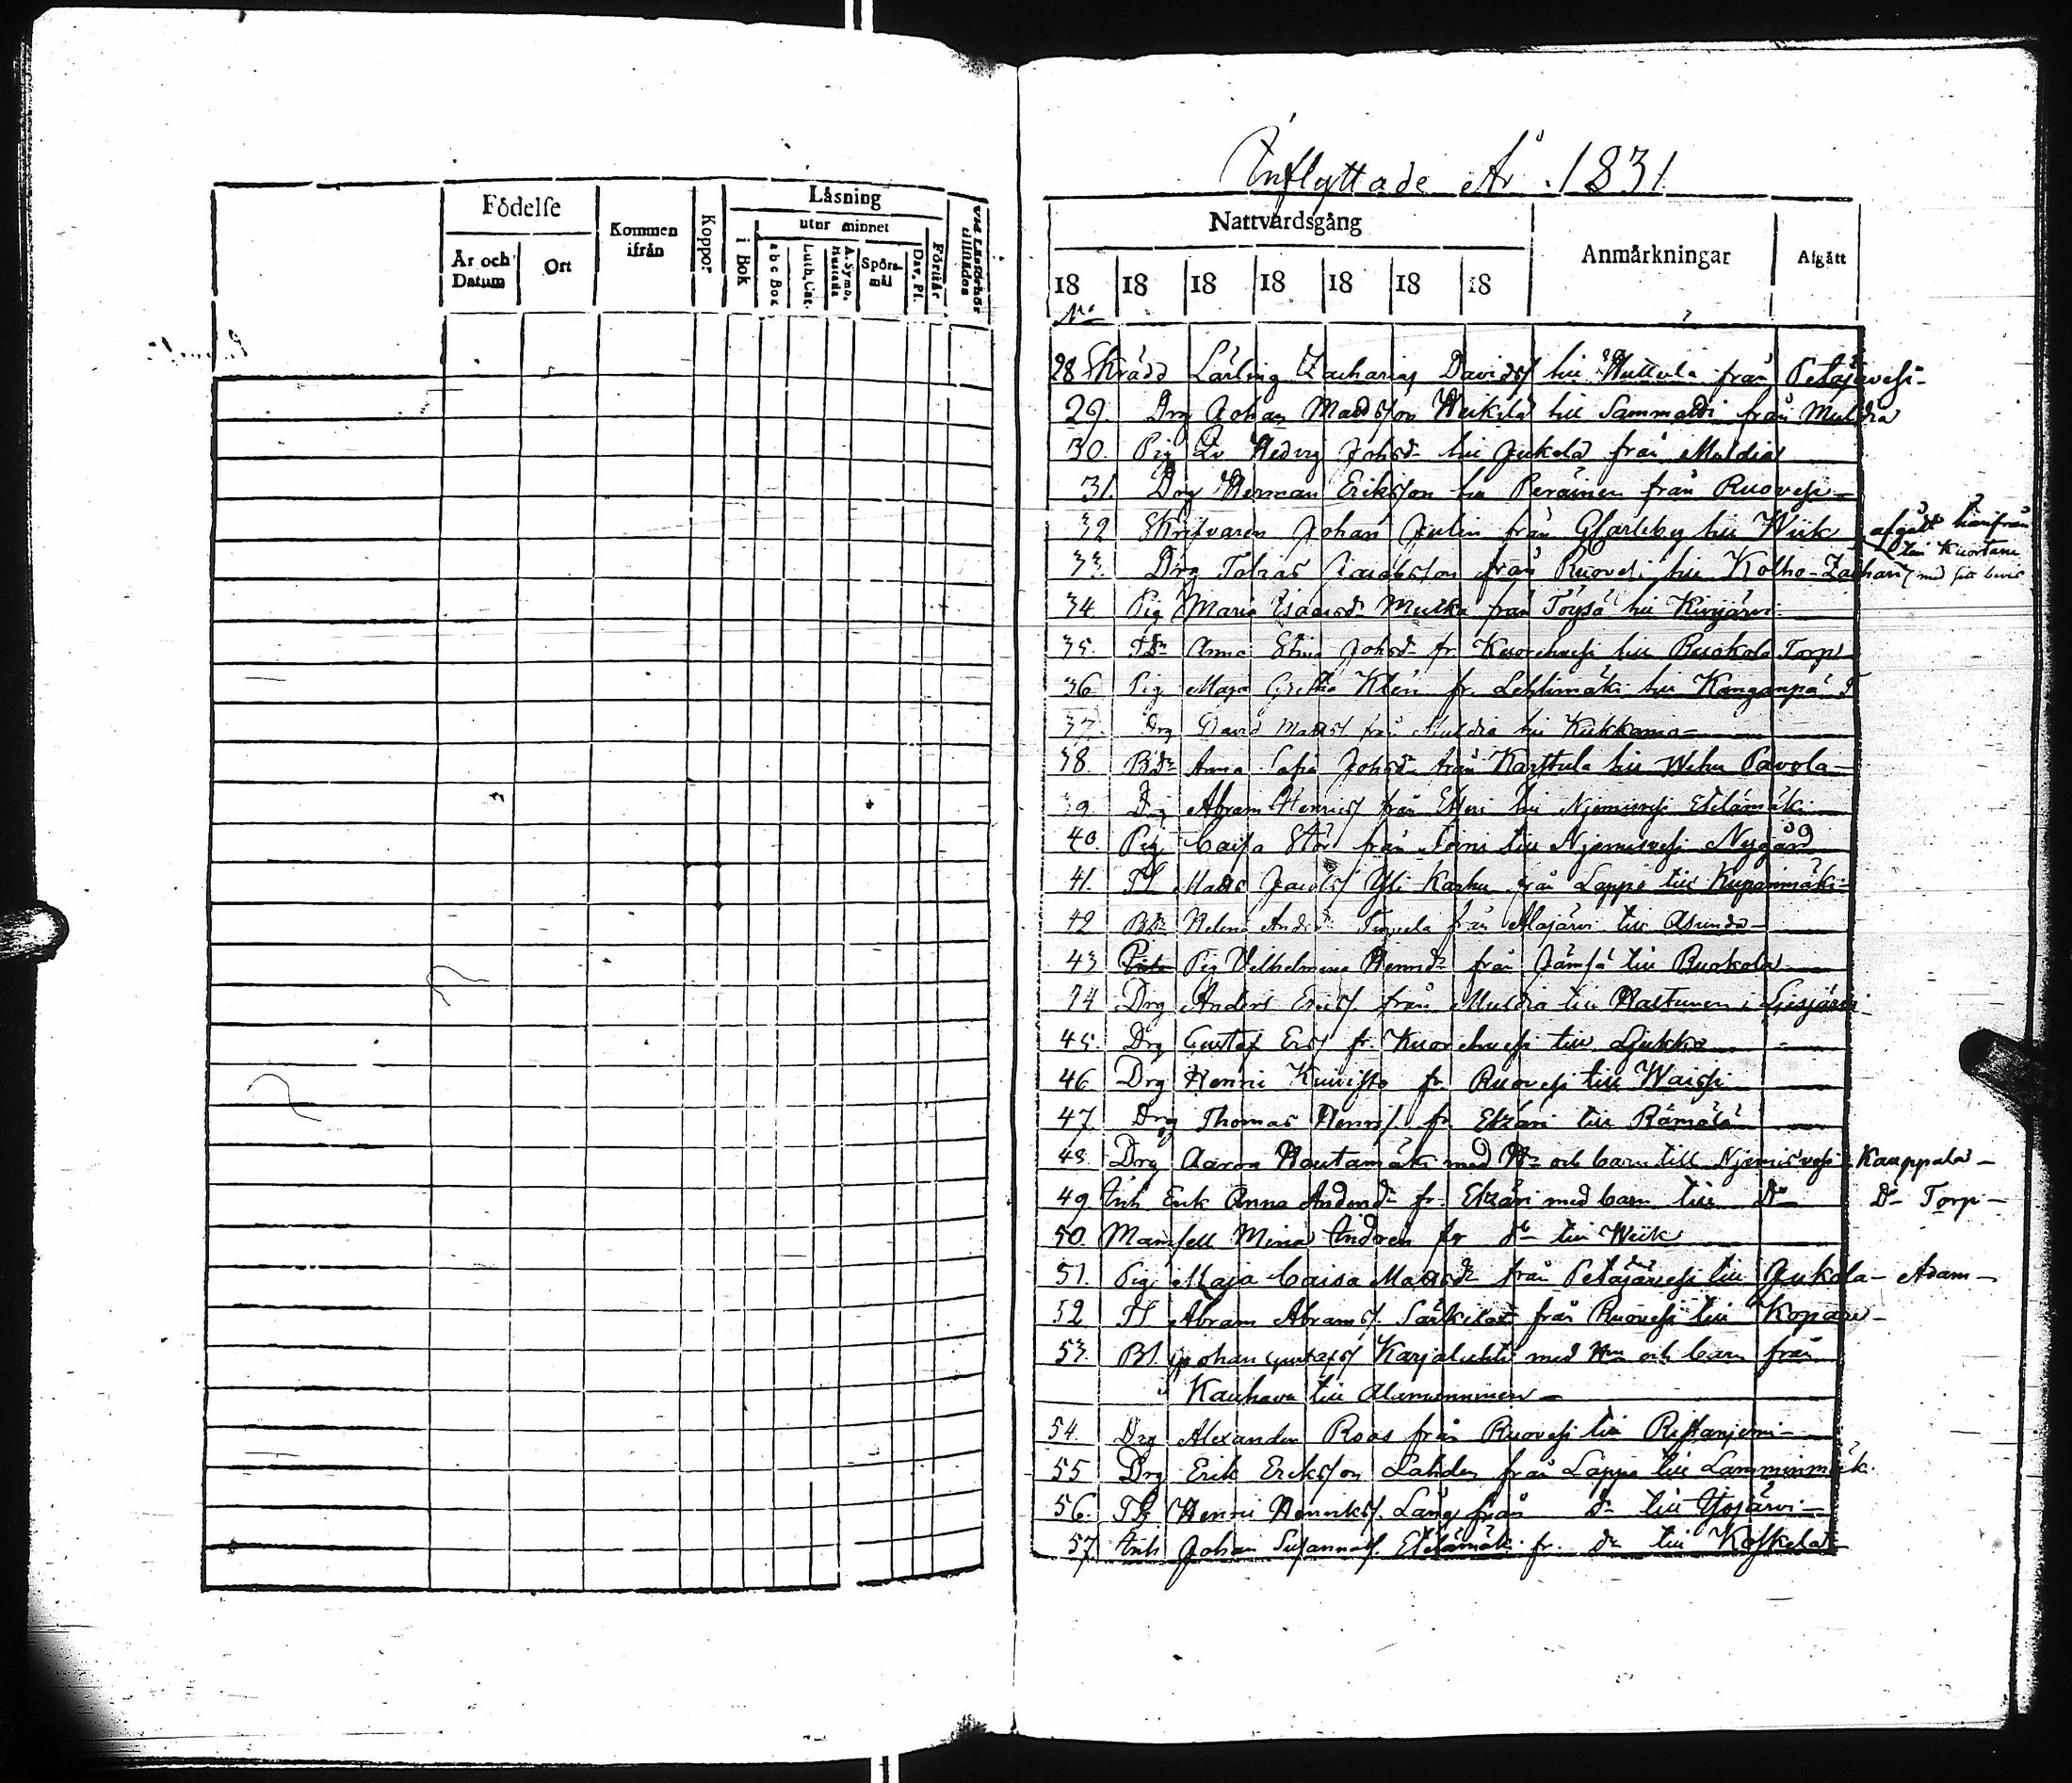 Födelse
År och Datum
Ort
Kommen ifrån
Koppor
Läsning
i Bok
utur minnet
abc Bok
Luth. Cat.
A. Symb. Hustafla
Spörsmål
Dav. Ps.
Förstår
vid Läsförhör tillstädes
Inflyttade År 1831
Nattvardsgång
Anmärkningar
Afgått
18 18 18 18 18 18 18
No
28 Skrädd Lärling Zacharias Davidss till Huttula från Petäjävesi
29. Drg Johan Madsson Heikilä till Sammaldi från Muldia
30. Pig Hedvig Johsdr till Jukola från Muldia
31. Drg Herman Eriksson till Peräinen från Ruovesi
32 Skrifvaren Johan Julin från Glarleby till Wiik
afgått härifrån till Kuortane med sitt bevis
33. Drg Tobias Jacobsson från Ruovesi till Kolho-Zachari
34 Pig Maria Isaacsdr från Töysä till Kivijärvi
35. Tdr Anna Stina Johsdr fr. Kuorehvesi till Ruokola Torp
36 Pig Maja Greta Klen fr. Lehtimäki till Kanganpä T
37. Drg David Matss från Muldia till
38. Bdr Anna Sofia Johsdr från Karstula till Wehu Pavola
39. Drg Abram Henricss från Etseri till Njemisvesi Etelämäki
40. Pig Caisa Stör från till Njemisvesi Nygård
41. Ts Mats Jacobss Yli Karhu från Lappo till Kupanmäki
42 Bdr Helena Andsdr från Alajärvi till Asunda
43 Pig Vilhelmina Henricsdr från Jämsä till Ruokola
44 Drg Anders Ericss. från Muldia till Hastunen i Liesjärvi
45. Drg Gustaf Ericss fr. Kuorehvesi till Ljukka
46 Drg Henric Kuivisto fr Ruovesi till Waissi
47. Drg Thomas Henricss fr Etzäri till Rämälä
48. Drg Aaron Hautamäki med Hu och barn till Njemisvesi Kauppala
49 Inh Enk Anna Andersdr fr. Etzäri med barn till Do Do Torp
50. Mamsell Mina Indren fr do till Wiik
51. Pig Maja Caisa Matsdr från Petäjävesi till Jukola - Adam
52 Ts Abram Abramss. Särkelax från Ruovesi till Kopan
53. Bs. Johan Gustafss Karjalahti med Hu och barn från
Kauhava till
54. Drg Alexander Roos från Ruovesi till Ristanjemi
55 Drg Erik Eriksson Lahden från Lappo till Lamminmäk.
56. Ts Henric Henrikss. Lång från do till
57 Inh Johan Susannass. Etelämäki fr. do till Koskela